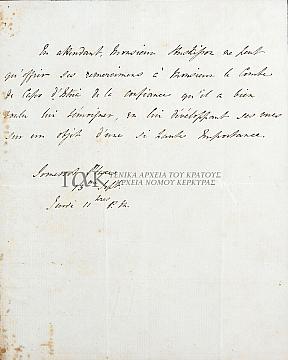 En attendant, Monsieur Huskisson ne peut
qu'offrir ses remercimens à Monsieur le Comte
de Capo d'Istria de la confiance qu'il a bien
voulu lui témoigner, en lui développant ses vues
sur un objet d'une si haute importance.
Somerset
ΓΕΝΙΚΑ ΑΡΧΕΙΑ ΤΟΥ ΚΡΑΤΟΥΣ
ΑΡΧΕΙΑ ΝΟΜΟΥ ΚΕΡΚΥΡΑΣ
Jeudi 11 hres P.M.